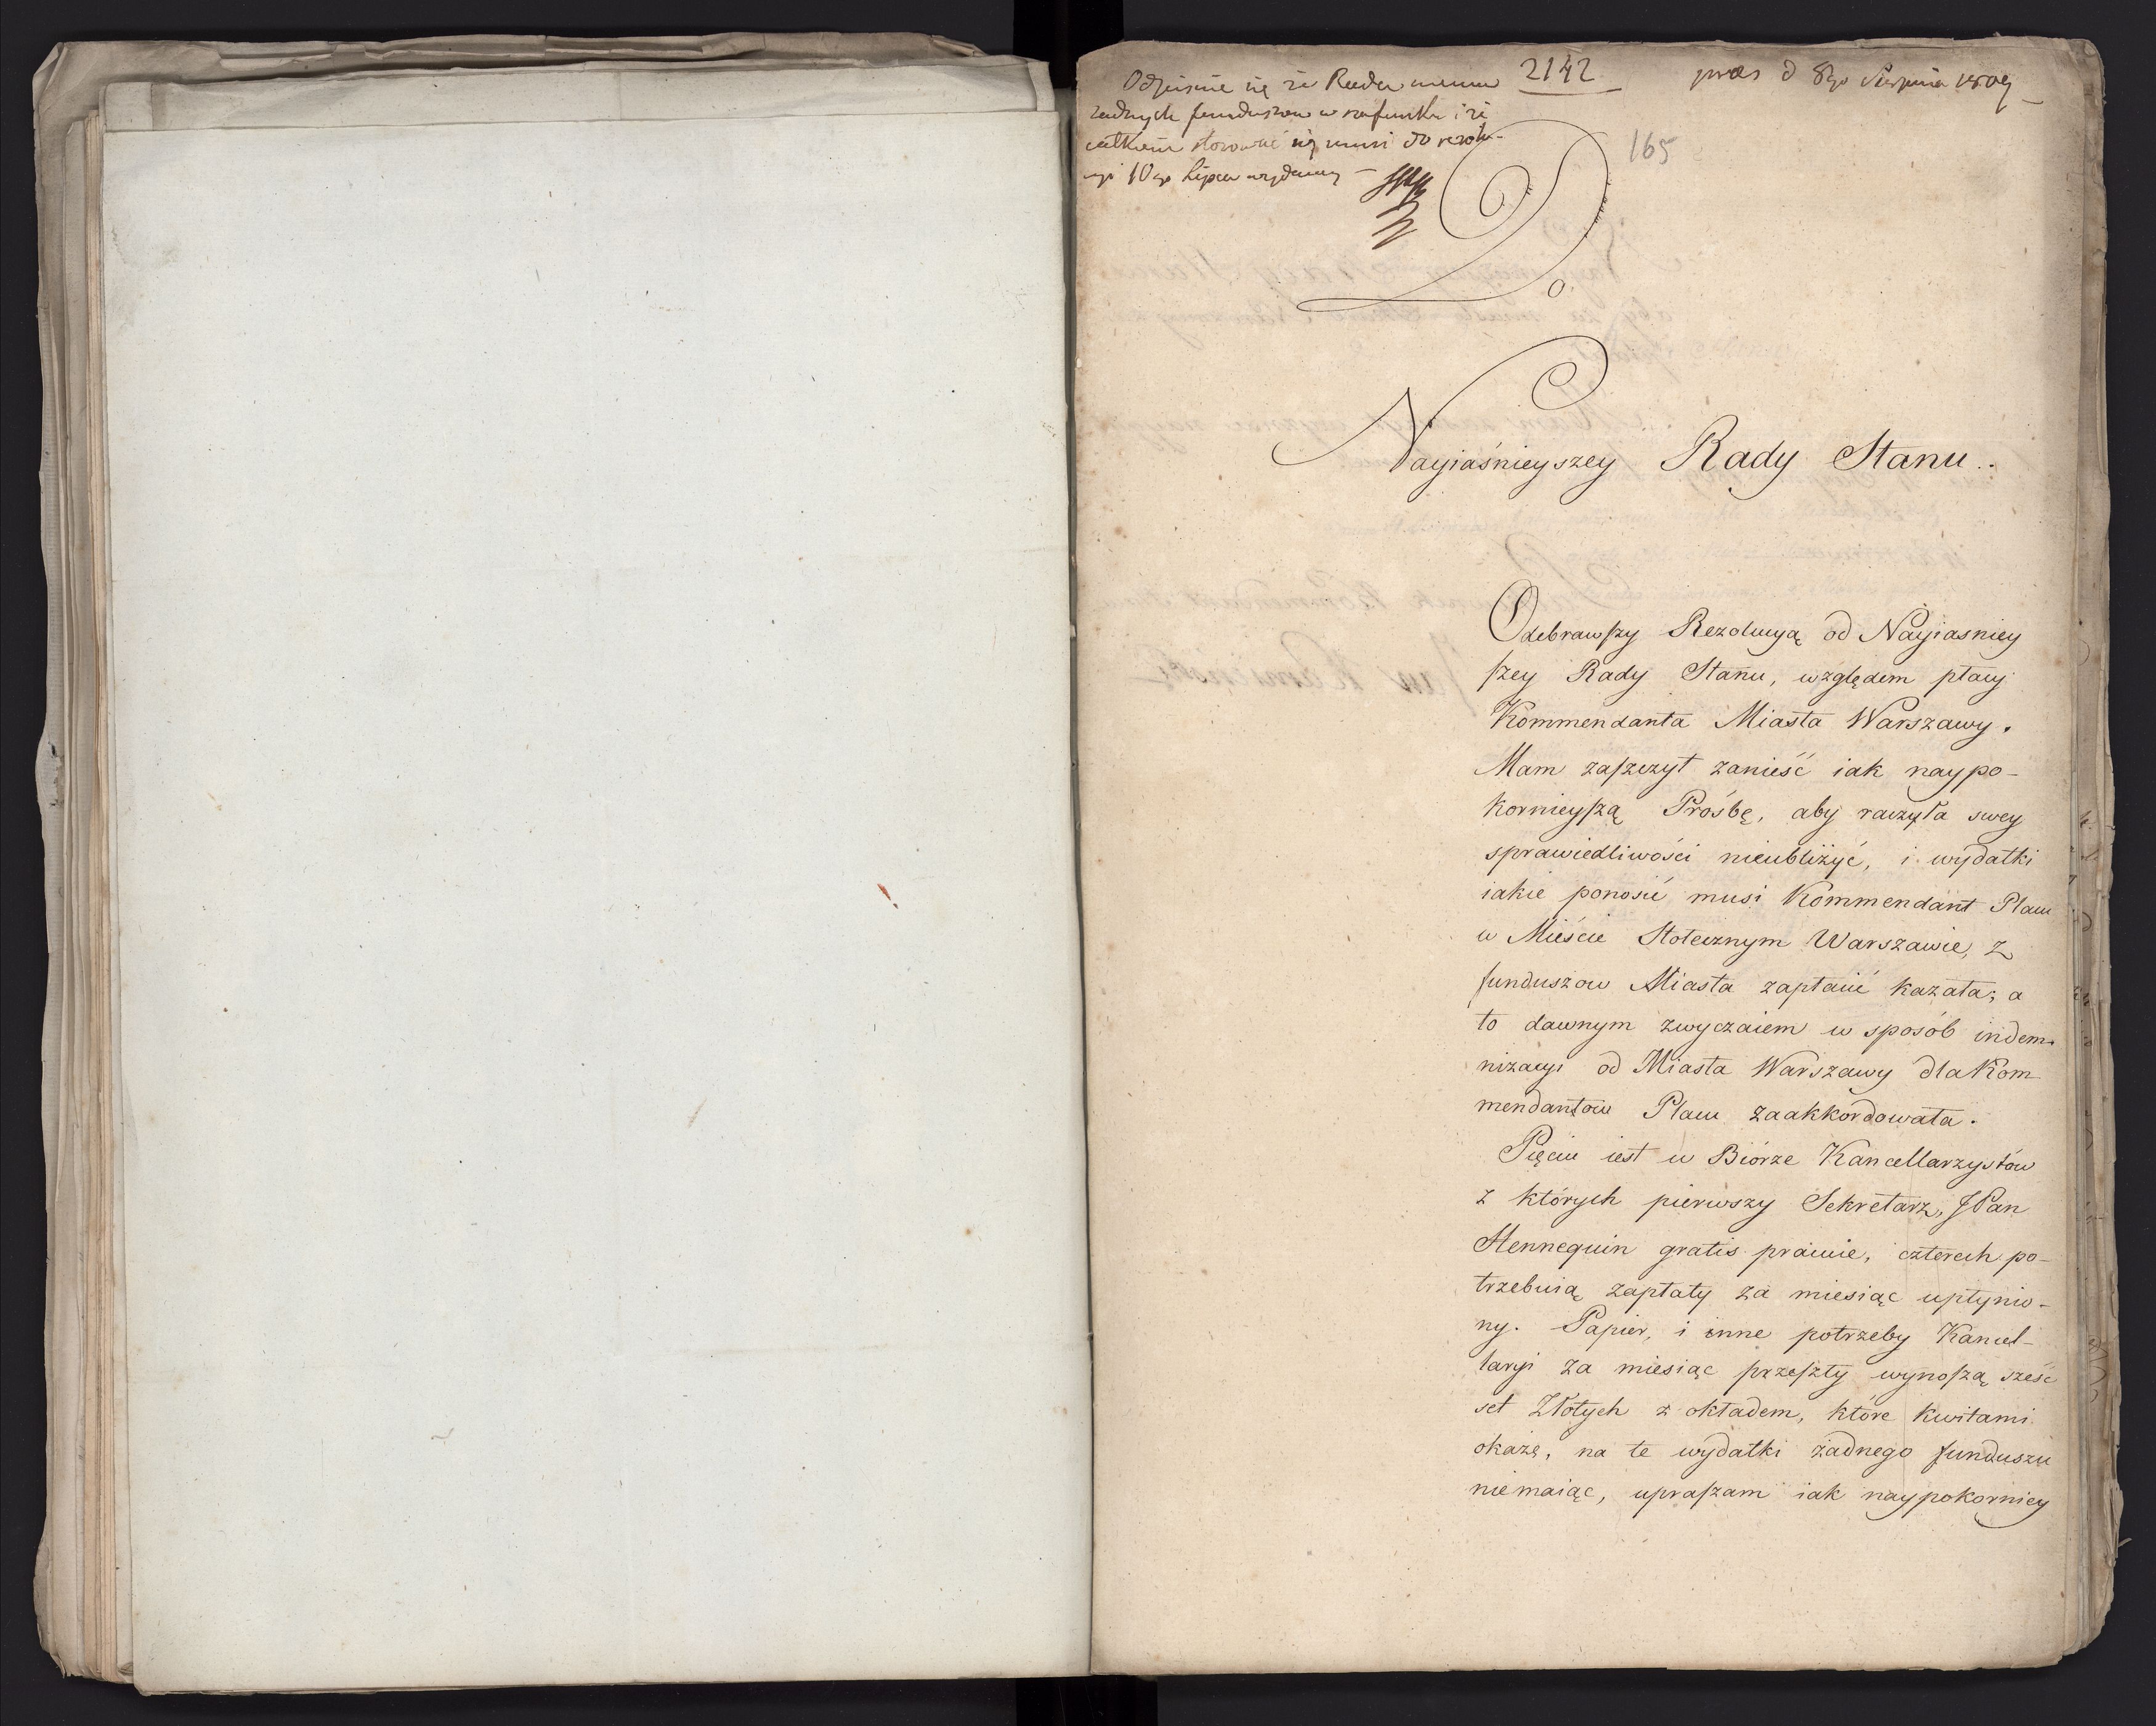 Odpisuie się że Rada niema
żadnych funduszow w szafunku i że
całkiem stosować się musi do rezolu-
cyi 10go Lipca wydaney –
2142
prces d 8go Sierpnia 1809
165
Do
Nayiaśnieyszey Rady Stanu.
Odebrawszy Rezolucyą od Nayiasniey
szey Rady Stanu, względem płacy
Kommendanta Miasta Warszawy.
Mam zaszczyt zanieść iak naypo-
kornieyszą Prośbę, aby raczyła swey
sprawiedliwości nieubliżyć, i wydatki
iakie ponosić musi Kommendant Placu
w Mieście Stołecznym Warszawie, z
funduszow Miasta zapłacić kazała; a
to dawnym zwyczaiem w sposób indem-
nizacyi od Miasta Warszawy dla Kom
mendantów Placu zaakkordowała.
Pięciu iest w Biórze Kancellarzystów
z których pierwszy Sekretarz, JPan
Hennequin gratis pracuie, czterech po-
trzebuią zapłaty za miesiąc upłynio-
ny. Papier, i inne potrzeby Kancel-
laryi za miesiąc przeszły wynoszą sześć
set Złotych z okładem, które kwitami
okażę, na te wydatki żadnego funduszu
niemaiąc, upraszam iak naypokorniey